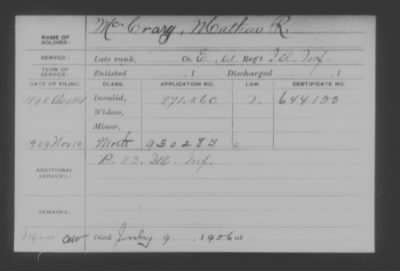 NAME OF SOLDIER: McCrary, Mathew R.
SERVICE: Late rank, Co. E, 61 Reg't Ill. Inf.
TERM OF SERVICE: Enlisted , 1 Discharged , 1
DATE OF FILING. CLASS. APPLICATION NO. LAW. CERTIFICATE NO.
1890 Aug Invalid, 871.560 644100
Widow,
Minor,
1909 Mother 930283
ADDITIONAL SERVICES: A. 83. Ill. Inf.
REMARKS:
Died July 9, 1906 at